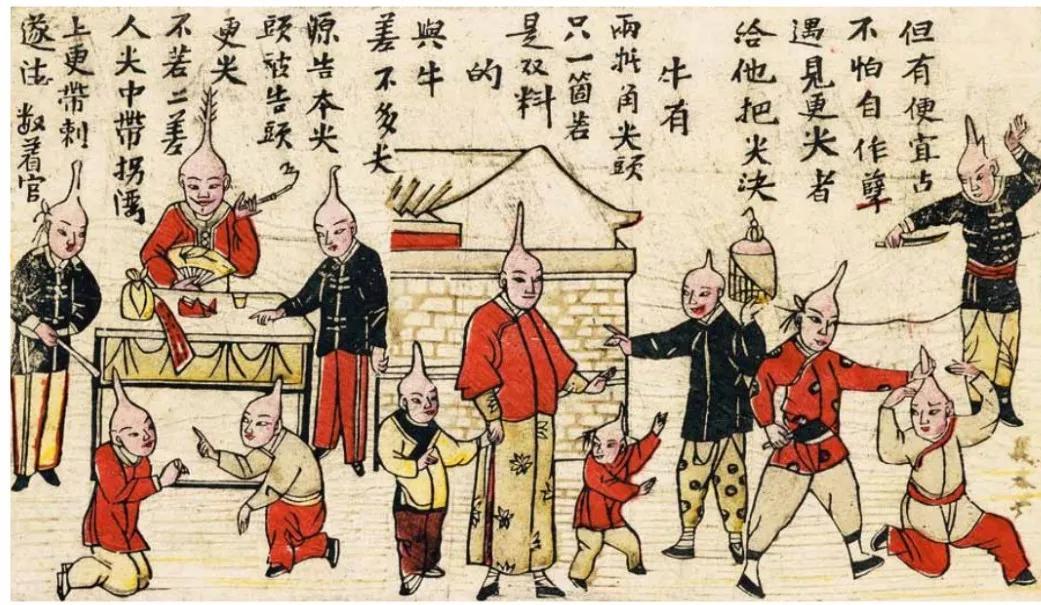 但有便宜占
不怕自作孽
遇見更尖者
給他把尖決
牛有
兩抵角尖頭
只一箇若
是双料
的
與牛
差不多尖
源告本尖
頭被告頭
更尖
不若二差
人尖中帶拐灣
上更帶刺
遂法 着官